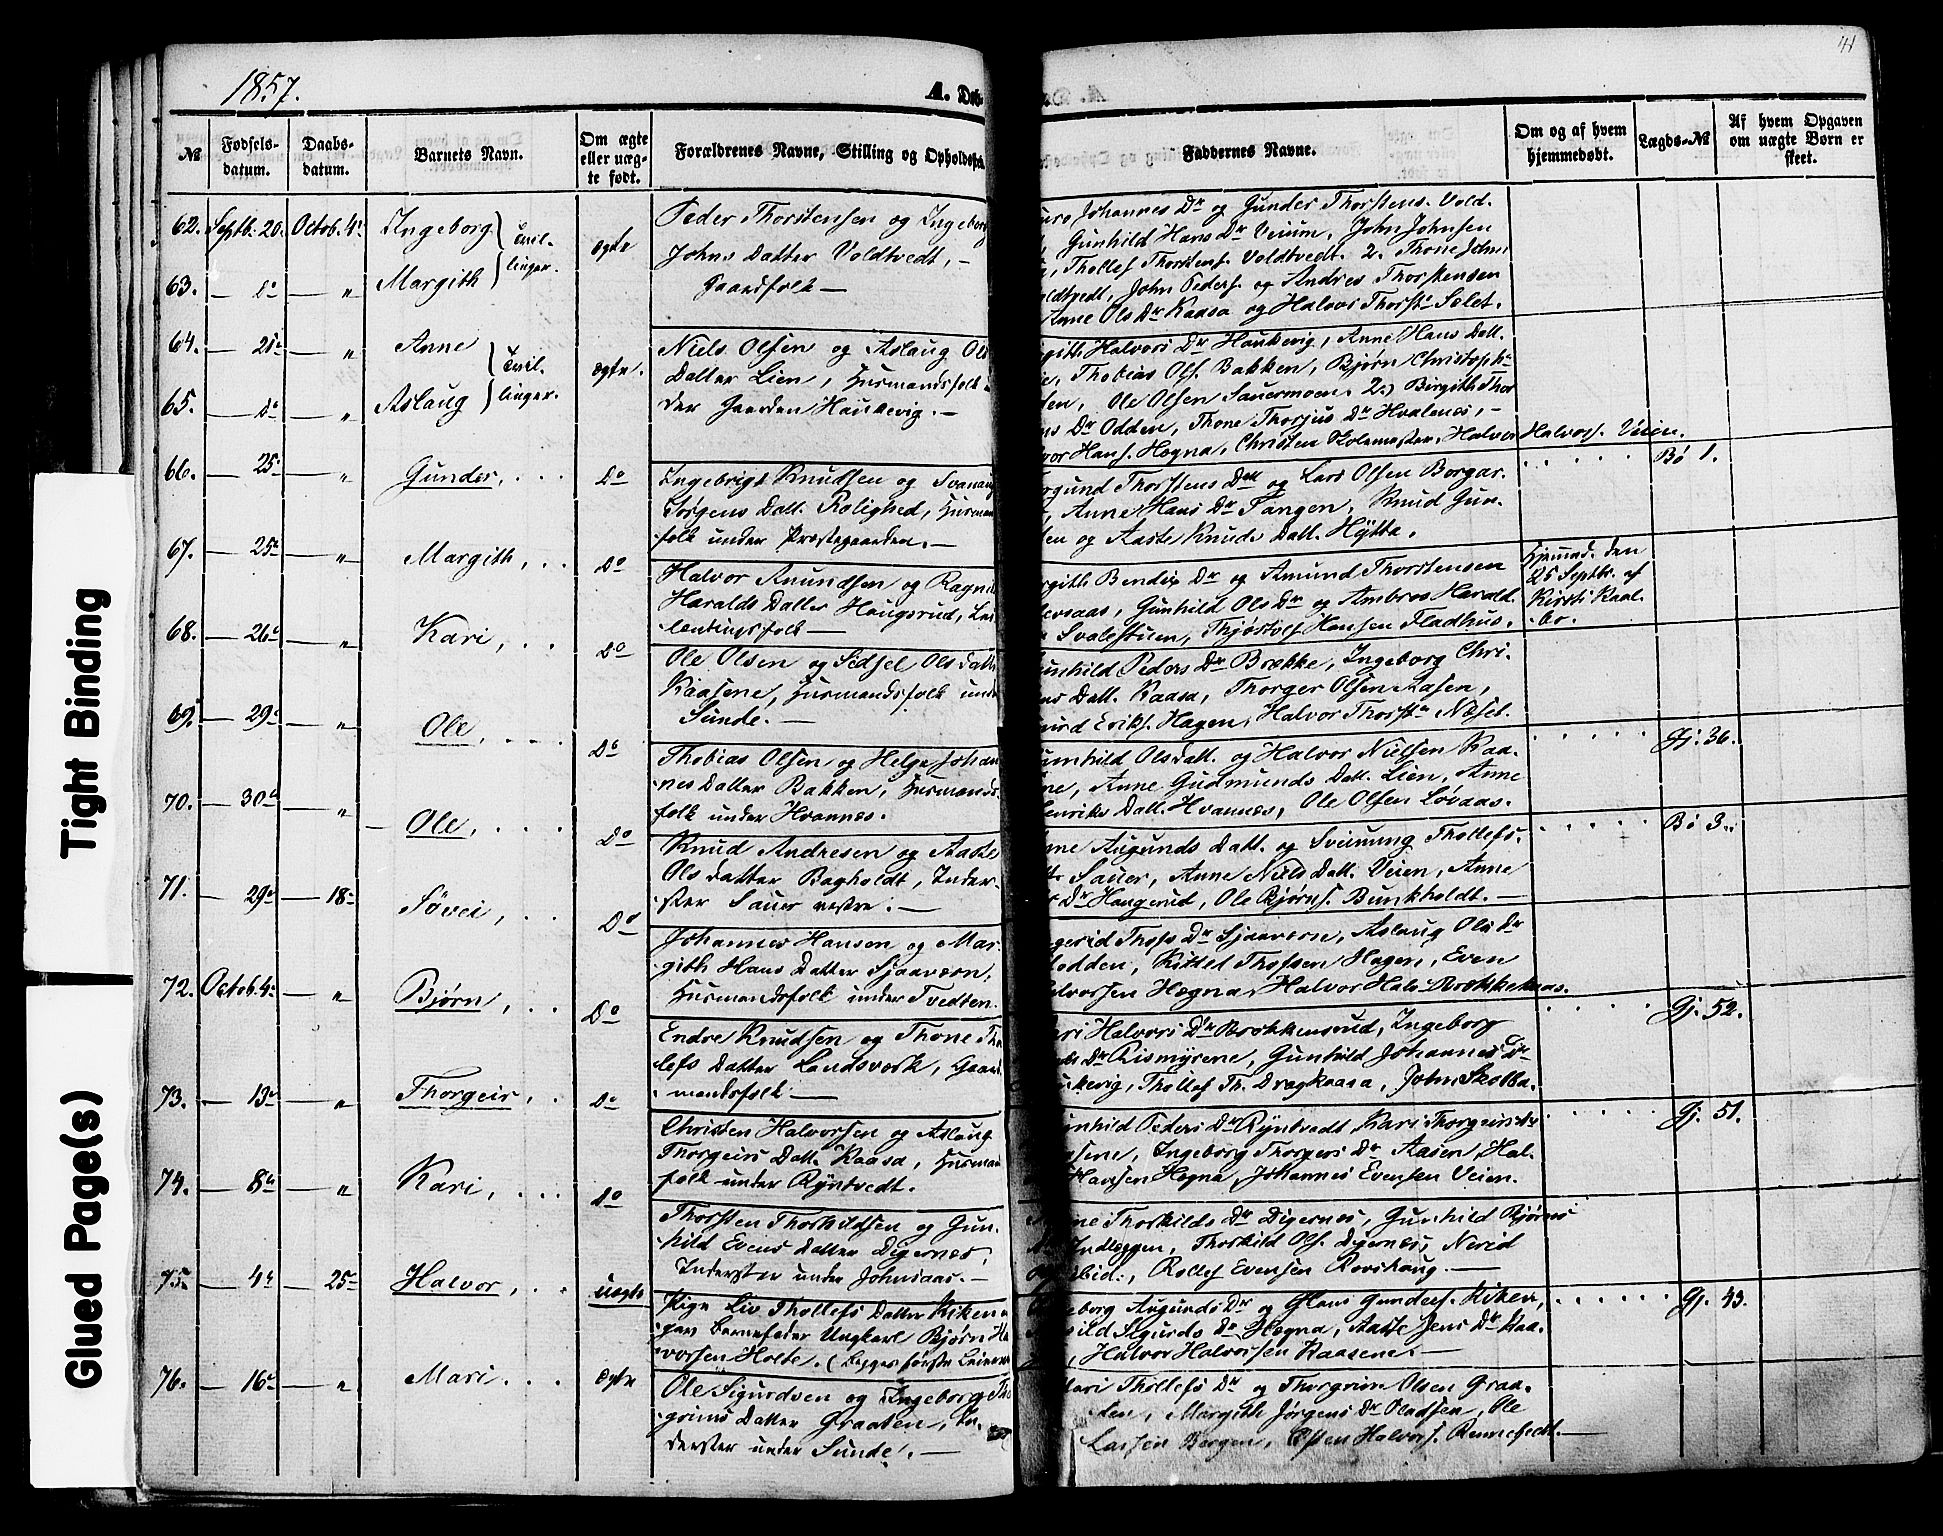 1857.
A. Døb-
A. D
41
№
Fødsels-
datum.
Daabs-
datum.
Barnets Navn.
Om ægte
eller uæg-
te født.
Forældrenes Navne, Stilling og Opholdsste
Faddernes Navne.
Om og af hvem
hjemmedøbt.
Lægds-№
Af hvem Opgaven
om uægte Børn er
skeet.
62. Septb. 20. Octob. 4. Ingeborg Tvil-
linger. ægte
63. D° " Margith
Peder Thorstensen og Ingeborg
Johns Datter Voldtvedt, -
Gaardfolk -
Johannes Dr og Gunder Thorstens. Vold.
Gunhild Hans Dr Veium, John Johnsen
Thollef Thorstens. Voldtvedt. 2. Thone Johns
ldtvedt, John Peders. og Andres Thorstensen
Anne Ols Dr Kaasa og Halvor Thorst. Selet.
64. 21 " Anne Tvil-
linger. ægte.
65. D° " Aslaug
Niels Olsen og Aslaug Ols
Datter Lien, Husmandsfolk
der Gaarden Haukevig. -
gith Halvors Dr Haukevig, Anne Hans Datt.
Thobias Ols. Bakken, Bjørn Christoph
den, Ole Olsen Sauermoen. 2.) Birgith Thor
Dr Odden, Thone Thorjus Dr Hvalenes, -
vor Hans. Høgna, Christen Skolemester, Halvor Halvors. Veien.
66. 25 " Gunder, . . . D°
Ingebrigt Knudsen og Svanaug
Jørgens Datt. Rolighed, Husman
folk under Præstegaarden. -
gund Thorstens Datt og Lars Olsen Borgar.
Anne Hans Dr Tangen, Knud Gun-
sen og Aaste Knuds Datt. Hytta.
Bø 1.
67. 25 " Margith, . . D°
Halvor Anundsen og Ragnil
Haralds Datter Haugsrud, Lei
lændingsfolk -
gith Bendix Dr og Amund Thorstensen
versaas, Gunhild Ols Dr og Ambros Harald
Svalestuen, Thjøstolf Hansen Fladhus.
Hjemmed. den
25 Septb. af
Kirsti Kaal-
bo.
68. 26 " Kari, . . D°
Ole Olsen og Sidsel Ols Datt
Kaasene, Husmandsfolk und
Sunde. -
unhild Peders Dr Brække, Ingeborg Chri-
ens Datt. Kaasa, Thorger Olsen Aasen,
Eriks. Hagen, Halvor Thorst. Nøset.
69. 29 " Ole, . . . . D°
Thobias Olsen og Helge Johan
nes Datter Bakken, Husmands
folk under Hvannes.
unhild Ols Datt. og Halvor Nielsen Kaa-
ne, Anne Gudmunds Datt. Lien, Anne
Henriks Datt. Hvannes, Ole Olsen Løvaas.
Gj. 36.
70. 30 " Ole, . . . . D°
Knud Andresen og Aaste
Ols Datter Bagholdt, Inder-
ster Sauer vestre. -
ne Augunds Datt. og Sveinung Thollefs.
Sauer, Anne Niels Datt. Veien, Anne
Dr Haugerud, Ole Bjørns. Bunkholdt. -
Bø 3.
71. 29 18 Søvei, . . D°
Johannes Hansen og Mar-
gith Hans Datter Sjaaværn,
Husmandsfolk under Tvedten.
gerid Thofs Dr Sjaaværn, Aslaug Ols Dr
lodden, Kittel Thofsen Hagen, Even
alvorsen Høgna, Halvor Halv. Brækkehaas.
72. Octob. 4. " Bjørn, . . D°
Endre Knudsen og Thone Tho
lefs Datter Landsværk, Gaar
mandsfolk. -
ari Halvors Dr Brækkensrud, Ingeborg
Dr Rismyrene, Gunhild Johannes Dr
ukevig, Thollef Th. Dragkaasa, John Skolba.
Gj. 52.
73. 13 " Thorgeir, . D°
Christen Halvorsen og Aslaug
Thorgeirs Datt. Kaasa, Husman
folk under Ryntvedt.
unhild Peders Dr Ryntvedt, Kari Thorgeirs Dr
sene, Ingeborg Thorgers Dr Aasen, Hal-
Hansen Høgna, Johannes Evensen Veien.
Gj. 51.
74. 8 " Kari, . . . D°
Thorsten Thorkildsen og Gun-
hild Evens Datter Digernæs,
Inderster under Johnsaas. -
ne Thorkilds Dr Digernes, Gunhild Bjørns
Indlæggen, Thorkild Ols. Digernes, Nerid
ibid., Rollef Evensen Rovshaug. -
75. 4 25 Halvor, . . uægte
Pige Liv Thollefs Datter Riken
gav Barnefader Ungkarl Bjørn Ha
vorsen Holte. (Begges første Leierm
eborg Augunds Dr og Hans Gunders. Riken,
ild Sigurds Dr Høgna, Aaste Jens Dr Kaa-
, Halvor Halvorsen Kaasene. -
Gj. 43.
76. 16 " Mari . . . ægte
Ole Sigurdsen og Ingeborg Th
grims Datter Graaten, In-
derster under Sunde. -
ari Thollefs Dr og Thorgrim Olsen Graa-
ten, Margith Jørgens Dr Pladsen, Ole
Larsen Bergen, Østen Halvors. Rennefedt. -
Tight Binding
Glued Page(s)